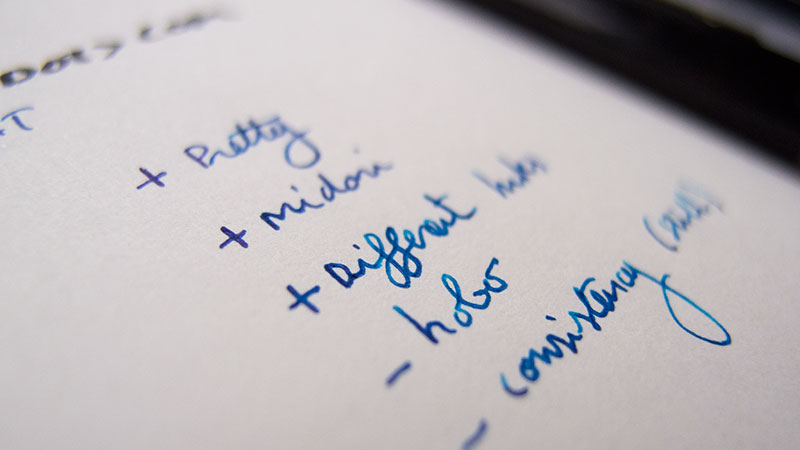 + Pretty
+ midori
+ Different inks
- hobo
- consistency